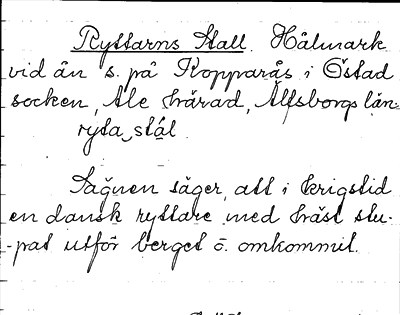 Ryttarns Stall. Hålmark
vid ån s. på Kopparås i Östad
socken, Ale härad, Älfsborgs län.
rŷta stâl
Sägnen säger, att i krigstid
en dansk ryttare med häst stu-
-pat utför berget o. omkommit.